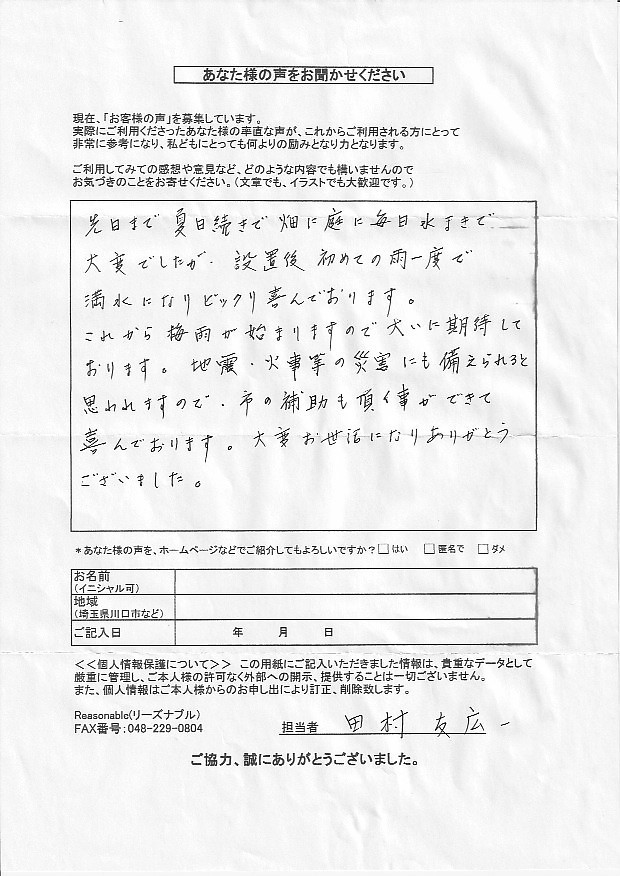 あなた様の声をお聞かせください
現在、「お客様の声」を募集しています。
実際にご利用くださったあなた様の率直な声が、これからご利用される方にとって
非常に参考になり、私どもにとっても何よりの励みとなり力となります。
ご利用してみての感想や意見など、どのような内容でも構いませんので
お気づきのことをお寄せください。(文章でも、イラストでも大歓迎です。)
先日まで夏日続きで畑に庭に毎日水まきで
大変でしたが、設置後初めての雨一度で
満水になりビックリ喜んでおります。
これから梅雨が始まりますので大いに期待して
おります。地震・火事等の災害にも備えられると
思われますので、市の補助も頂く事ができて
喜んでおります。大変お世話になりありがとう
ございました。
*あなた様の声を、ホームページなどでご紹介してもよろしいですか?□はい □匿名で □ダメ
お名前
(イニシャル可)
地域
(埼玉県川口市など)
ご記入日 年 月 日
<<個人情報保護について>> この用紙にご記入いただきました情報は、貴重なデータとして
厳重に管理し、ご本人様の許可なく外部への開示、提供することは一切ございません。
また、個人情報はご本人様からのお申し出により訂正、削除致します。
Reasonable(リーズナブル)
FAX番号:048-229-0804
担当者 田村 友広
ご協力、誠にありがとうございました。